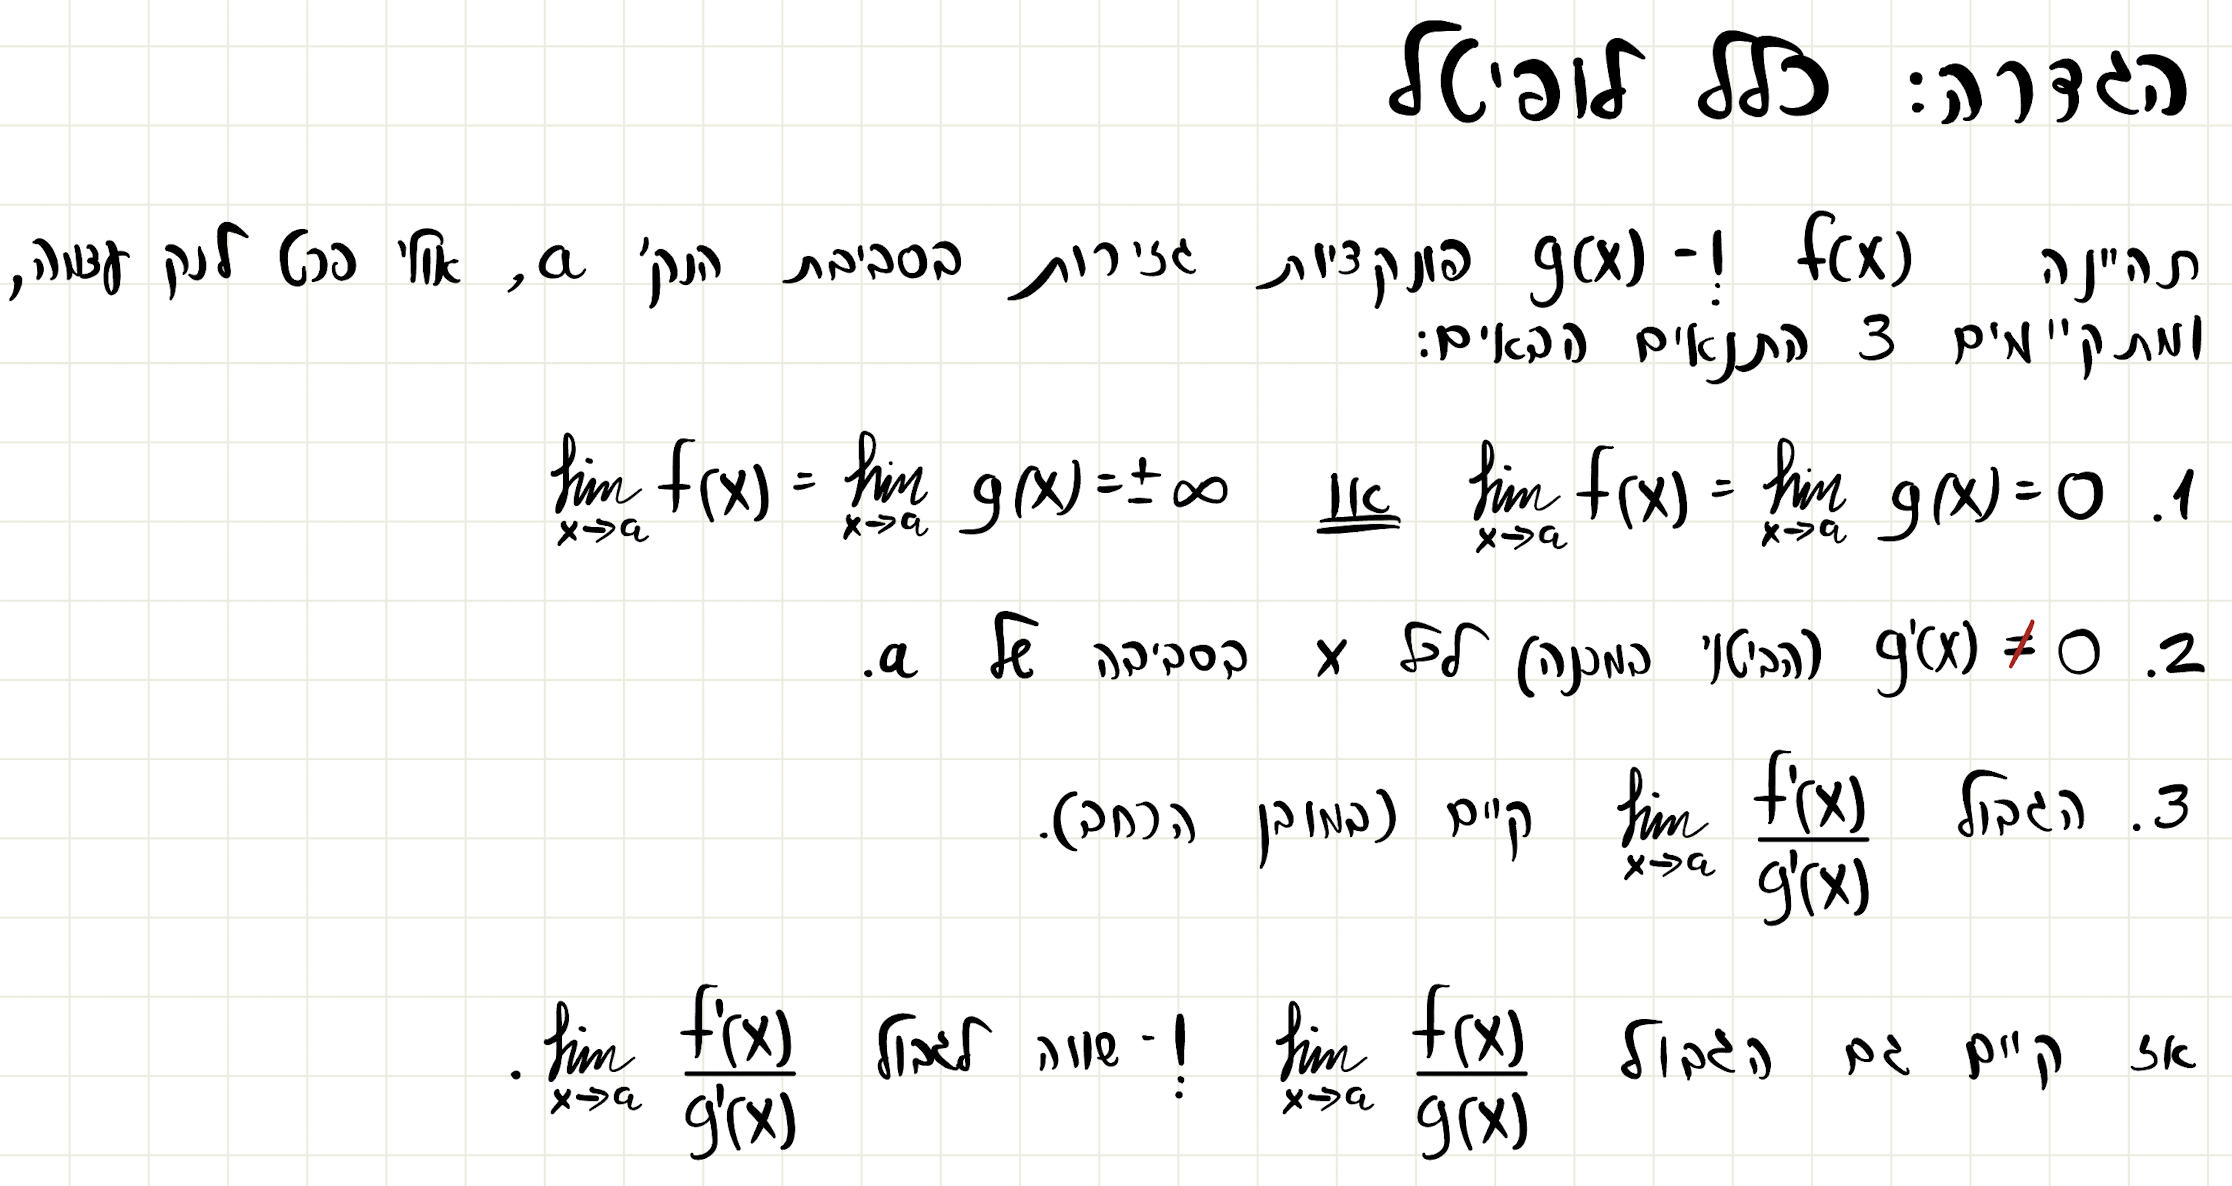 הגדרה: כלל לופיטל
תהיינה f(x) ו- g(x) פונקציות גזירות בסביבת הנק' a, אולי פרט לנק עצמה,
ומתקיימים 3 התנאים הבאים:
1. lim x→a f(x) = lim x→a g(x) = 0 או lim x→a f(x) = lim x→a g(x) = ±∞
2. g'(x) ≠ 0 (הביטוי במכנה) לכל x בסביבה של a.
3. הגבול lim x→a f'(x)/g'(x) קיים (במובן הרחב).
אז קיים גם הגבול lim x→a f(x)/g(x) ו- שווה לגבול lim x→a f'(x)/g'(x).